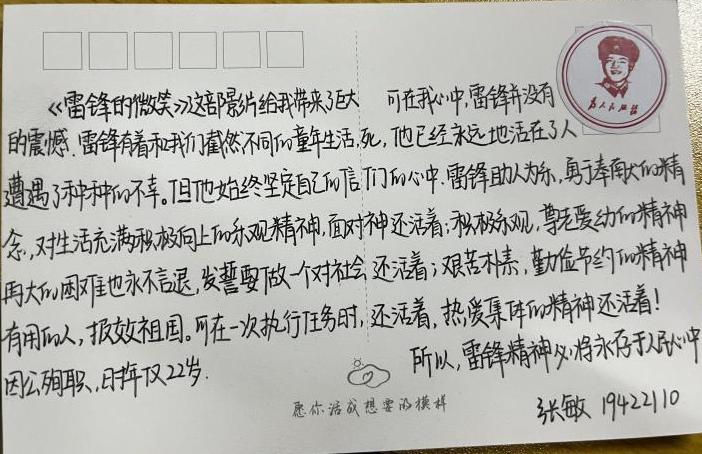 《雷锋的微笑》这部影片给我带来了巨大
的震憾.雷锋有着和我们截然不同的童年生活,
遭遇了种种的不幸。但他始终坚定自己的信
念,对生活充满积极向上的乐观精神,面对
再大的困难也永不言退,发誓要做一个对社会
有用的人,报效祖国。可在一次执行任务时,
因公殉职,时年仅22岁.
可在我心中,雷锋并没有
死,他已经永远地活在了人
们的心中.雷锋助人为乐,勇于奉献的精
神还活着;积极乐观,尊老爱幼的精神
还活着;艰苦朴素,勤俭节约的精神
还活着,热爱集体的精神还活着!
所以,雷锋精神必将永存于人民心中
张敏 19422110
愿你活成想要的模样
为人民服务